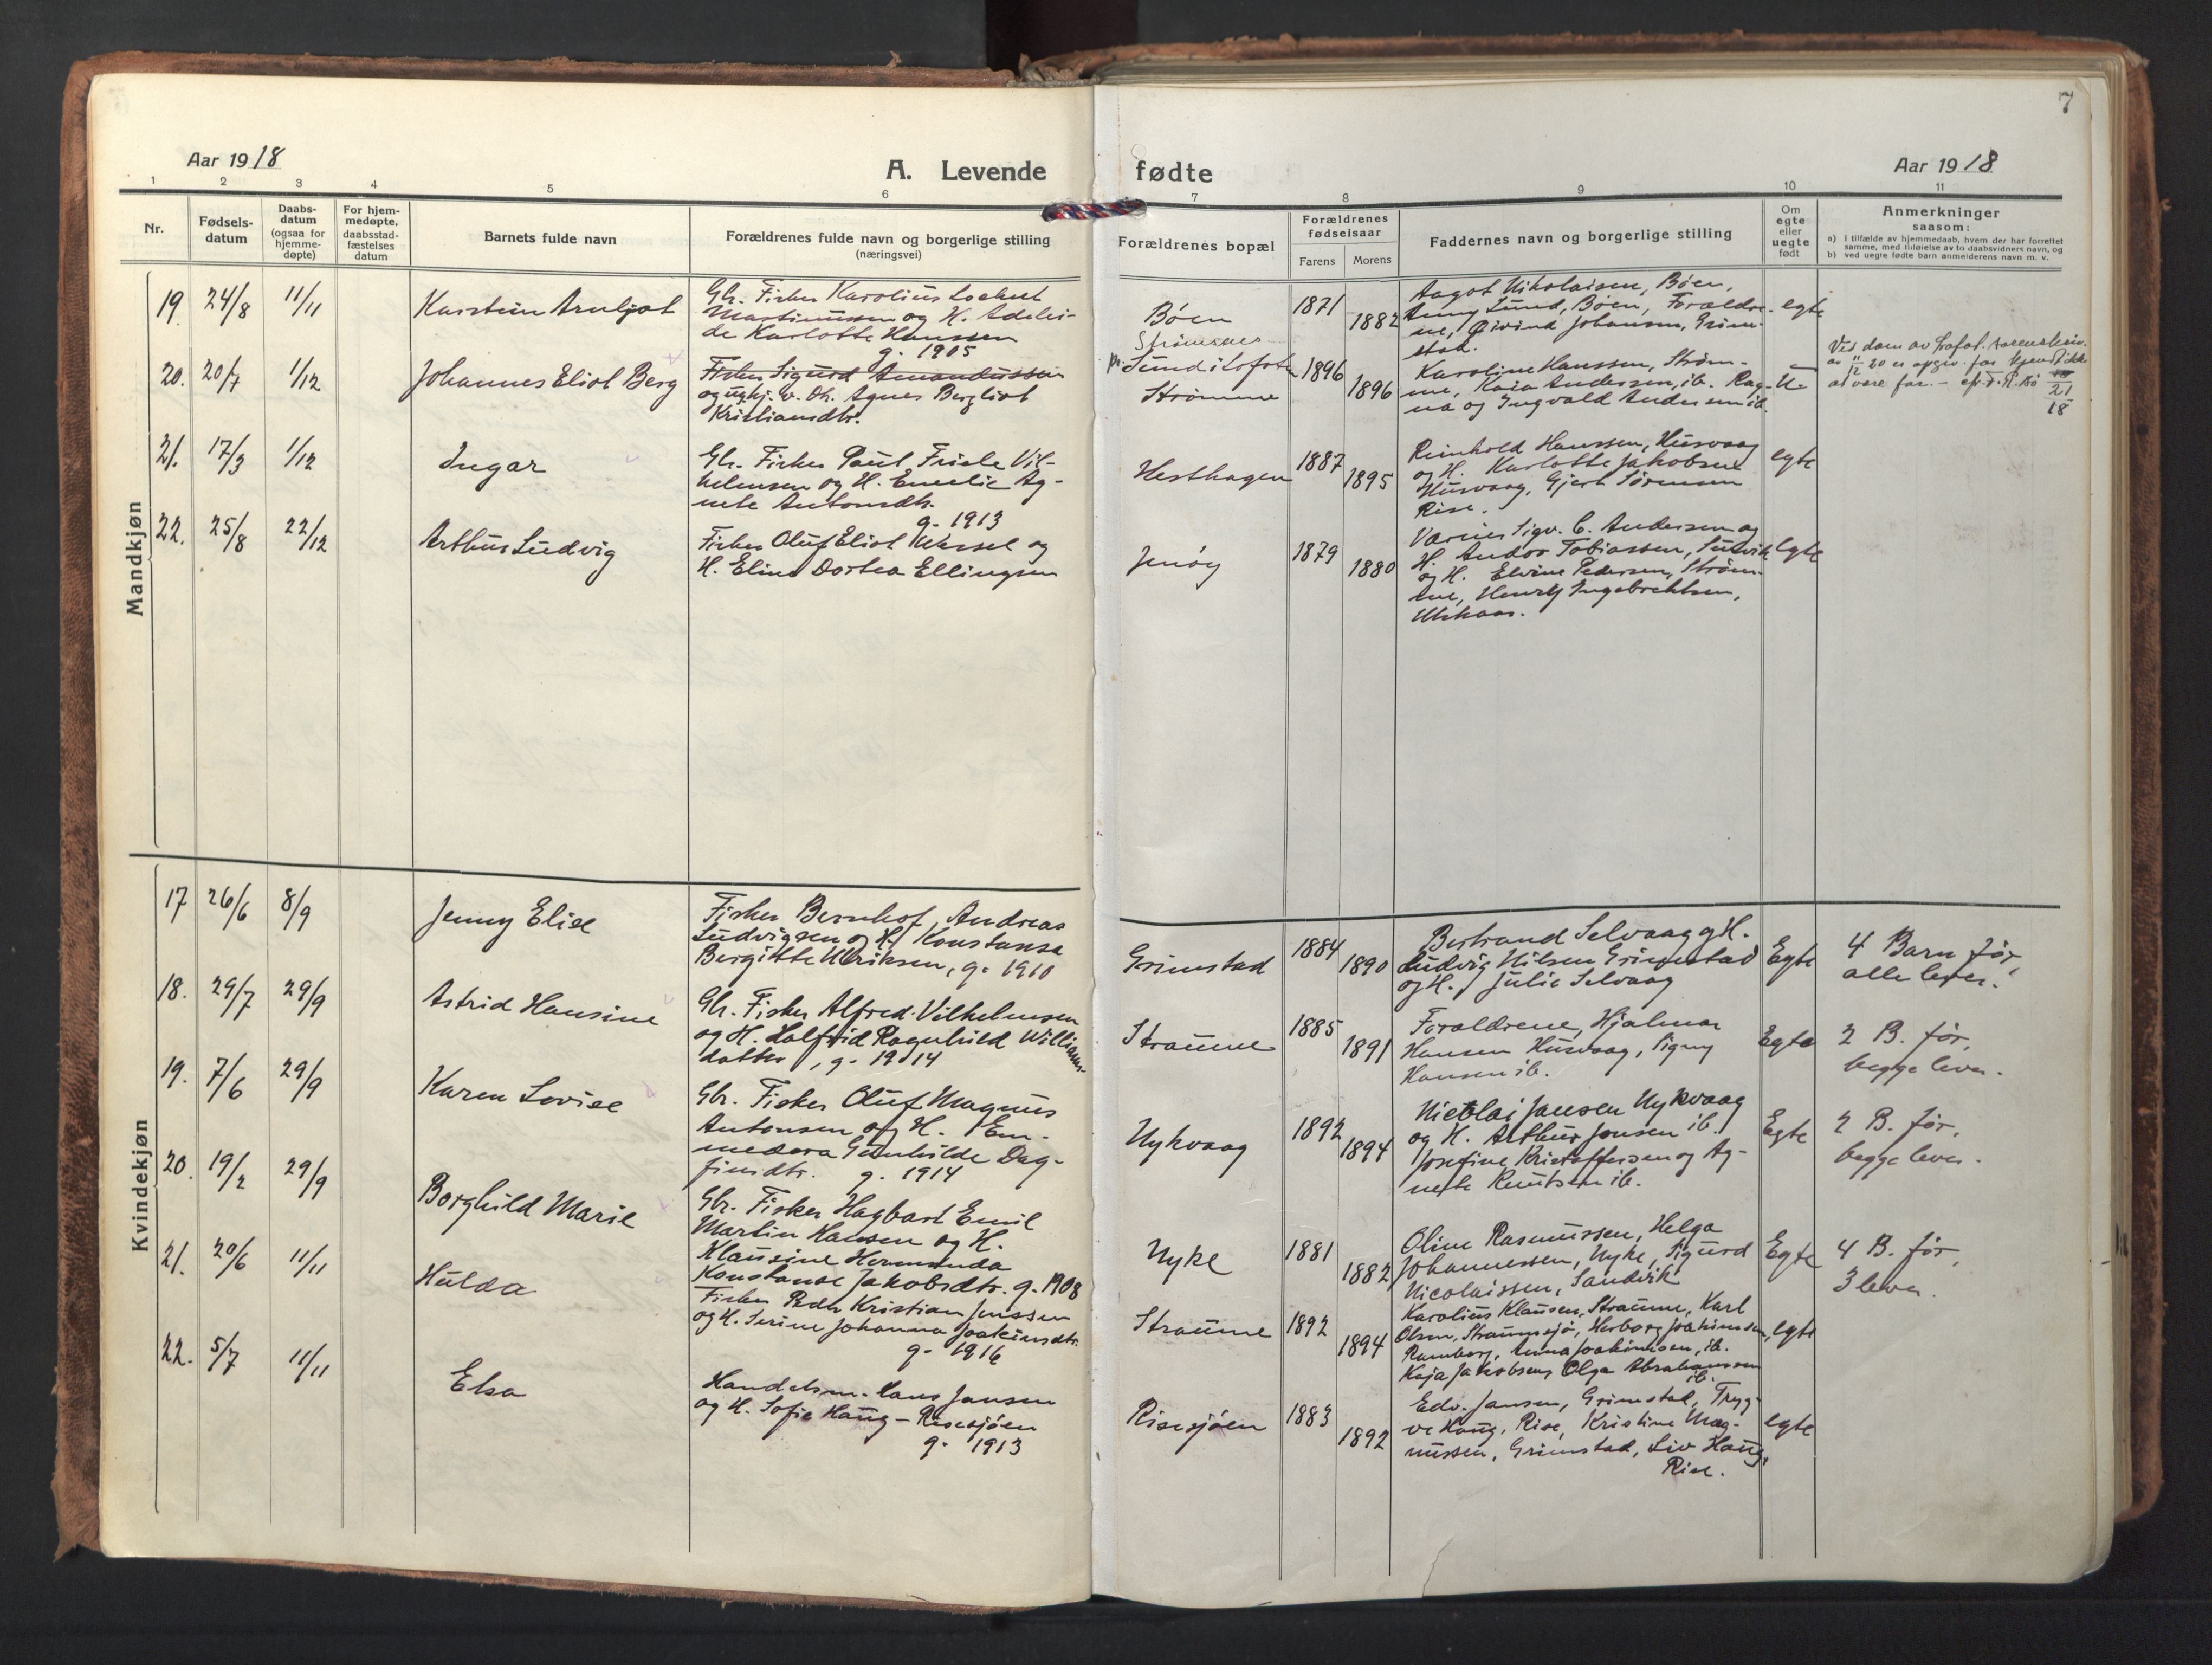 7
Aar 1918
A. Levende
fødte
Aar 1918
1 2 3 4 5 6 7 8 9 10 11
Nr.
Fødsels-
datum
Daabs-
datum
(ogsaa for
hjemme-
døpte)
For hjem-
medøpte,
daabsstad-
fæstelses
datum
Barnets fulde navn
Forældrenes fulde navn og borgerlige stilling
(næringsvei)
Forældrenes bopæl
Forældrenes
fødselsaar
Farens Morens
Faddernes navn og borgerlige stilling
Om
egte
eller
uegte
født
Anmerkninger
saasom:
a) I tilfælde av hjemmedaab, hvem der har forrettet
samme, med tilføielse av to daabsvidners navn, og
b) ved uegte fødte barn anmelderens navn m. v.
Mandkjøn
19. 24/8 11/11
Karstein Arnljot
Gbr. Fisker Karolius Lockert
Martinussen og H. Adelei-
de Karlotte Hanssen
g. 1905
Bøen
1871 1882
Aagot Nikolaisen, Bøen,
Anny Lund, Bøen, Forældre-
ne, Øivind Johansen, Grim-
stad.
egte
20. 20/7 1/12
Johannes Eliot Berg
Fisker Sigurd Amandussen
og ughj. v. Dk. Agnes Bergliot
Kristiansdtr.
Strømsnes
Sund i Lofoten
Strømme
1896 1896
Karoline Hanssen, Strøm-
me, Kaia Andersen, ib. Rag-
na og Ingvald Andersen ib.
U-
Ved dom av
av 11/12 20 er opgiv. far kjendt ikke
at være far. -
21. 17/3 1/12
Ingar
Gbr. Fisker Paul Friele Vil-
helmsen og H. Emelie Ag-
nete Antonsdtr.
g. 1913
Hesthagen
1887 1895
Reinhold Hanssen, Husvaag
og H. Karlotte Jakobsen
Husvaag, Gjert Sørensen
Rise.
egte
22. 25/8 22/12
Arthur Ludvig
Fisker Oluf Eliot Wessel og
H. Eline Dortea Ellingsen
Jenøy
1879 1880
Værnes Sigv. C. Andersen og
H. Andor Tobiassen, Sutvik
og H. Elvine Pedersen, Strøm-
me, Henry Ingebrechtsen,
Utskaar.
egte
Kvindekjøn
17 26/6 8/9
Jenny Elise
Fisker Bernhof Andreas
Ludvigsen og H. Konstanse
Bergitte Ulriksen, g. 1910
Grimstad
1884 1890
Bertrand Selvaag og H.
Ludvig Nilsen Grimstad
og H. Julie Selvaag
Egte
4 Barn før,
alle lever.
18. 29/7 29/9
Astrid Hansine
Gbr. Fisker Alfred Vilhelmsen
og H. Halfrid Ragnhild Williams-
datter, g. 1914
Straume
1885 1891
Forældrene, Hjalmar
Hansen Husvaag, Signy
Hansen ib.
Egte
2 B. før,
begge lever.
19. 7/6 29/9
Karen Lovise
Gbr. Fisker Oluf Magnus
Antonsen og H. Em-
medora Gunhilde Dag-
finsdtr. g. 1914
Nykvaag
1892 1894
Nicolai Jansen Nykvaag
og H. Arthur Jonsen ib.
Josefine Kristoffersen og Ag-
nete Knutsen ib.
Egte
2 B. før,
begge lever.
20. 19/2 29/9
Borghild Marie
Gbr. Fisker Hagbart Emil
Martin Hansen og H.
Klausine Hermanda
Konstanse Jakobsdtr. g. 1908
Nyke
1881 1882
Oline Rasmussen, Helga
Johannessen, Nyke, Sigurd
Nicolaissen, Sandvik
Egte
4 B. før,
3 lever.
21. 20/6 11/11
Hulda
Fisker Peder Kristian Jenssen
og H. Serine Johanna Joakimsdtr.
g. 1916
Straume
1892 1894
Karolius Klausen, Straume, Karl
Olsen, Straumsjø, Herborg Joakimsen,
Ramberg, Anna Joakimsen, ib.
Kaja Jakobsen, Olga Abrahamsen
ib.
egte
22. 5/7 11/11
Elsa
Handelsm. Hans Jansen
og H. Sofie Haug - Risesjøen
g. 1913
Risesjøen
1883 1892
Edv. Jansen, Grimstad, Tryg-
ve Haug, Rise, Kristine Mag-
nussen, Grimstad, Liv Haug,
Rise.
egte